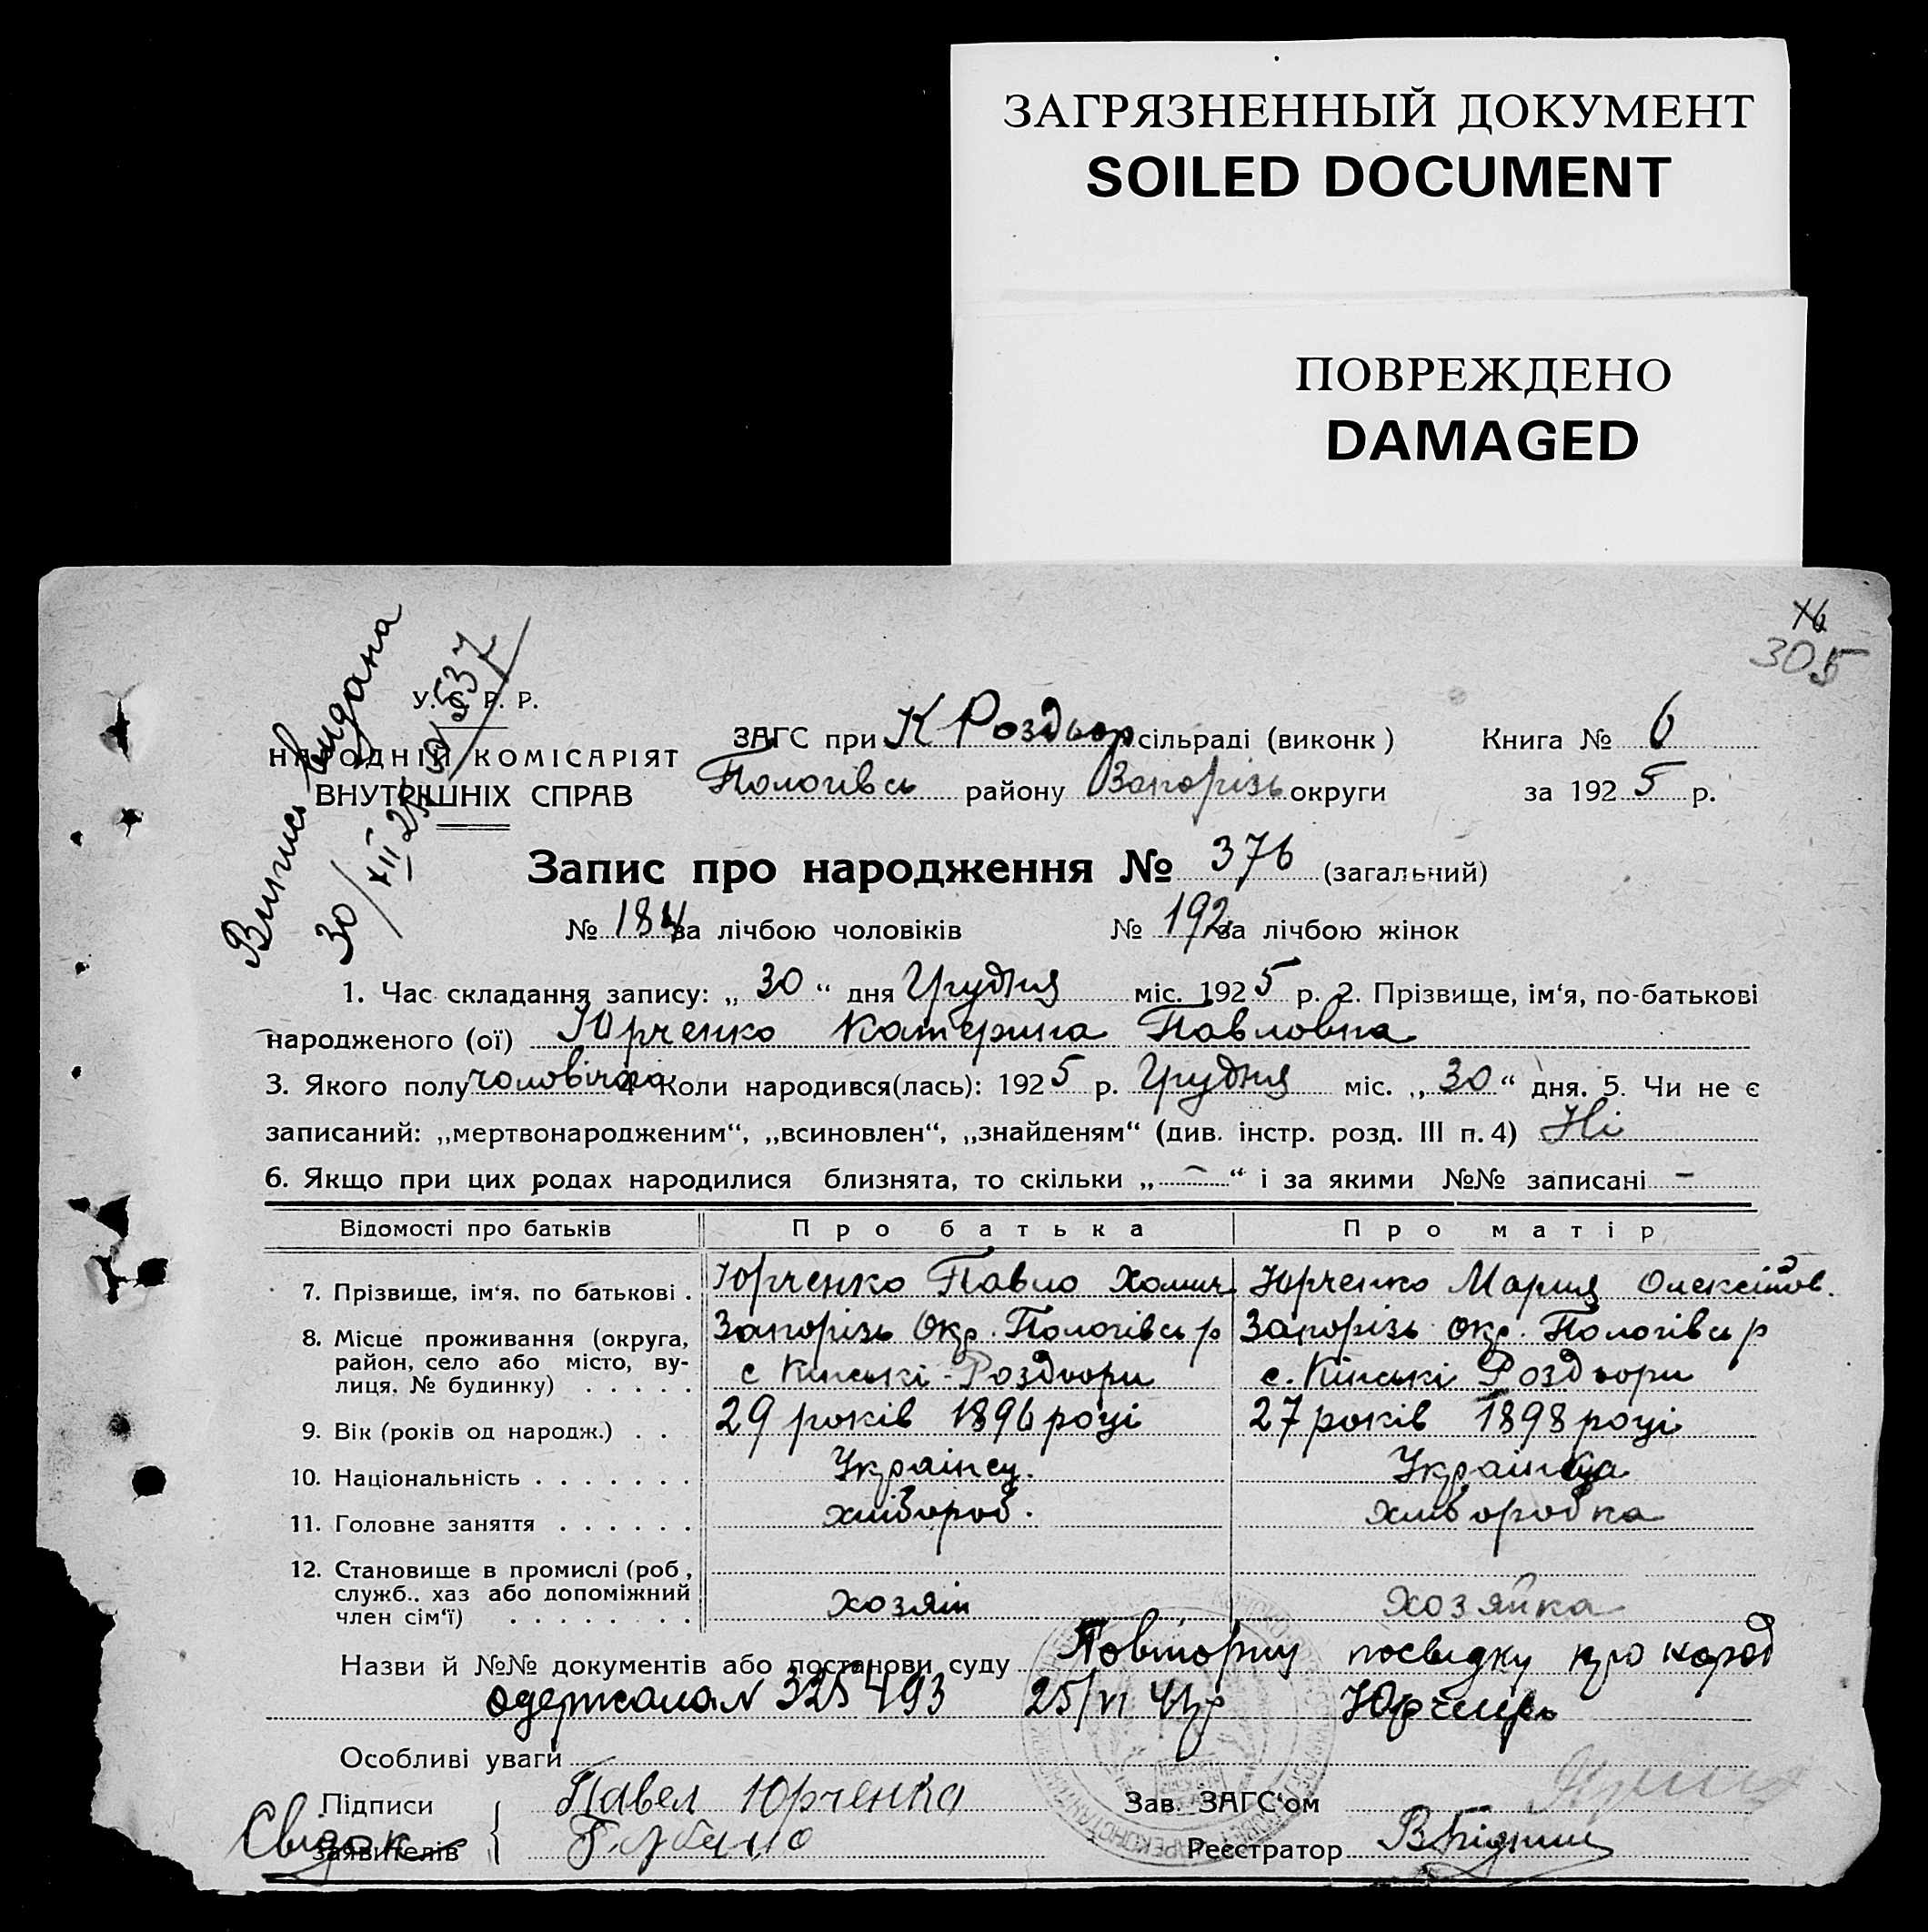 ЗАГРЯЗНЕННЫЙ ДОКУМЕНТ
SOILED DOCUMENT
ПОВРЕЖДЕНО
DAMAGED
305
Випись видана
30/XII 25 № 537
У. С. Р. Р.
НАРОДНІЙ КОМІСАРІЯТ
ВНУТРІШНІХ СПРАВ
ЗАГС при К Роздьор сільраді (виконк) Книга № 6
Пологівсь району Запорізь округи за 1925 р.
Запис про народження № 376 (загальний)
№ 184 за лічбою чоловіків № 192 за лічбою жінок
1. Час складання запису: „30“ дня Грудня міс. 1925 р. 2. Прізвище, ім‘я, по-батькові
народженого (ої) Юрченко Катерина Павловна
3. Якого полу чоловіча 4 Коли народився(лась): 1925 р. Грудня міс. „30“ дня. 5. Чи не є
записаний: „мертвонародженим“, „всиновлен“, „знайденям“ (див. інстр. розд. III п. 4) Ні
6. Якщо при цих родах народилися близнята, то скільки „—“ і за якими №№ записані —
Відомості про батьків Про батька Про матір
7. Прізвище, ім‘я, по батькові . Юрченко Павло Хомич Юрченко Мария
8. Місце проживання (округа, Запорізь Окр. Пологівсь р Запорізь окр. Пологівсь р
район, село або місто, ву-
лиця, № будинку) . . . . . с Кінські-Роздори с. Кінські Роздори
9. Вік (років од народж.) . . 29 років 1896 році 27 років 1898 році
10. Національність . . . . . . . Українец. Українка
11. Головне заняття . . . . . . хлібороб. хліборобка
12. Становище в промислі (роб,
служб., хаз або допоміжний
член сім‘ї) . . . . . . . . хозяін хозяйка
Назви й №№ документів або постанови суду Повторну посвідку про народ
одержала № 325493 25/VI
Особливі уваги
Підписи Павел Юрченко Зав. ЗАГС‘ом
Свидок заявителів Реєстратор